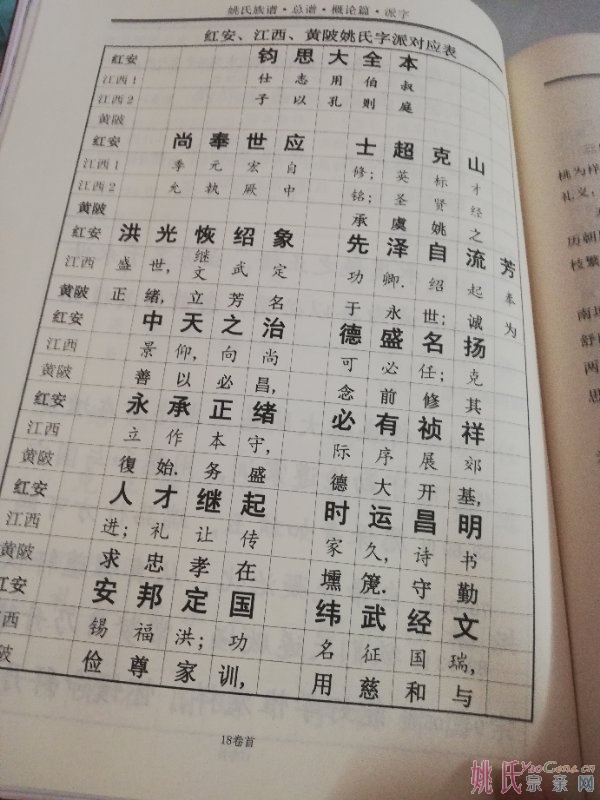 姚氏族谱·总谱·概论篇·派字
红安、江西、黄陂姚氏字派对应表
红安 钧 思 大 全 本
江西1 仕 志 用 伯 叔
江西2 子 以 孔 则 庭
黄陂
红安 尚 奉 世 应 士 超 克 山
江西1 季 元 宏 自 修; 英 标 才
江西2 允 执 厥 中 铭; 圣 贤 经
黄陂 承 虞 姚 之
红安 洪 光 恢 绍 象 先 泽 自 流 芳
江西 盛 世, 继文 武 定 功 卿. 绍 起 泰
黄陂 正 绪, 立 芳 名 于 永 世; 诚 为
红安 中 天 之 治 德 盛 名 扬
江西 景 仰, 向 尚 可 必 任; 克
黄陂 善 以 必 昌, 念 前 修 其
红安 永 承 正 绪 必 有 祯 祥
江西 立 作 本 守, 际 序 展 郊
黄陂 復 始. 务 盛 德 大 开 基,
红安 人 才 继 起 时 运 昌 明
江西 进; 礼 让 传 家 久, 诗 书
黄陂 求 忠 孝 在 壎 篪. 守 勤
红安 安 邦 定 国 纬 武 经 文
江西 锡 福 洪; 功 名 征 国 瑞,
陂 俭 尊 家 训, 用 慈 和 与
18卷首
姚氏宗亲网
YaoGens.com